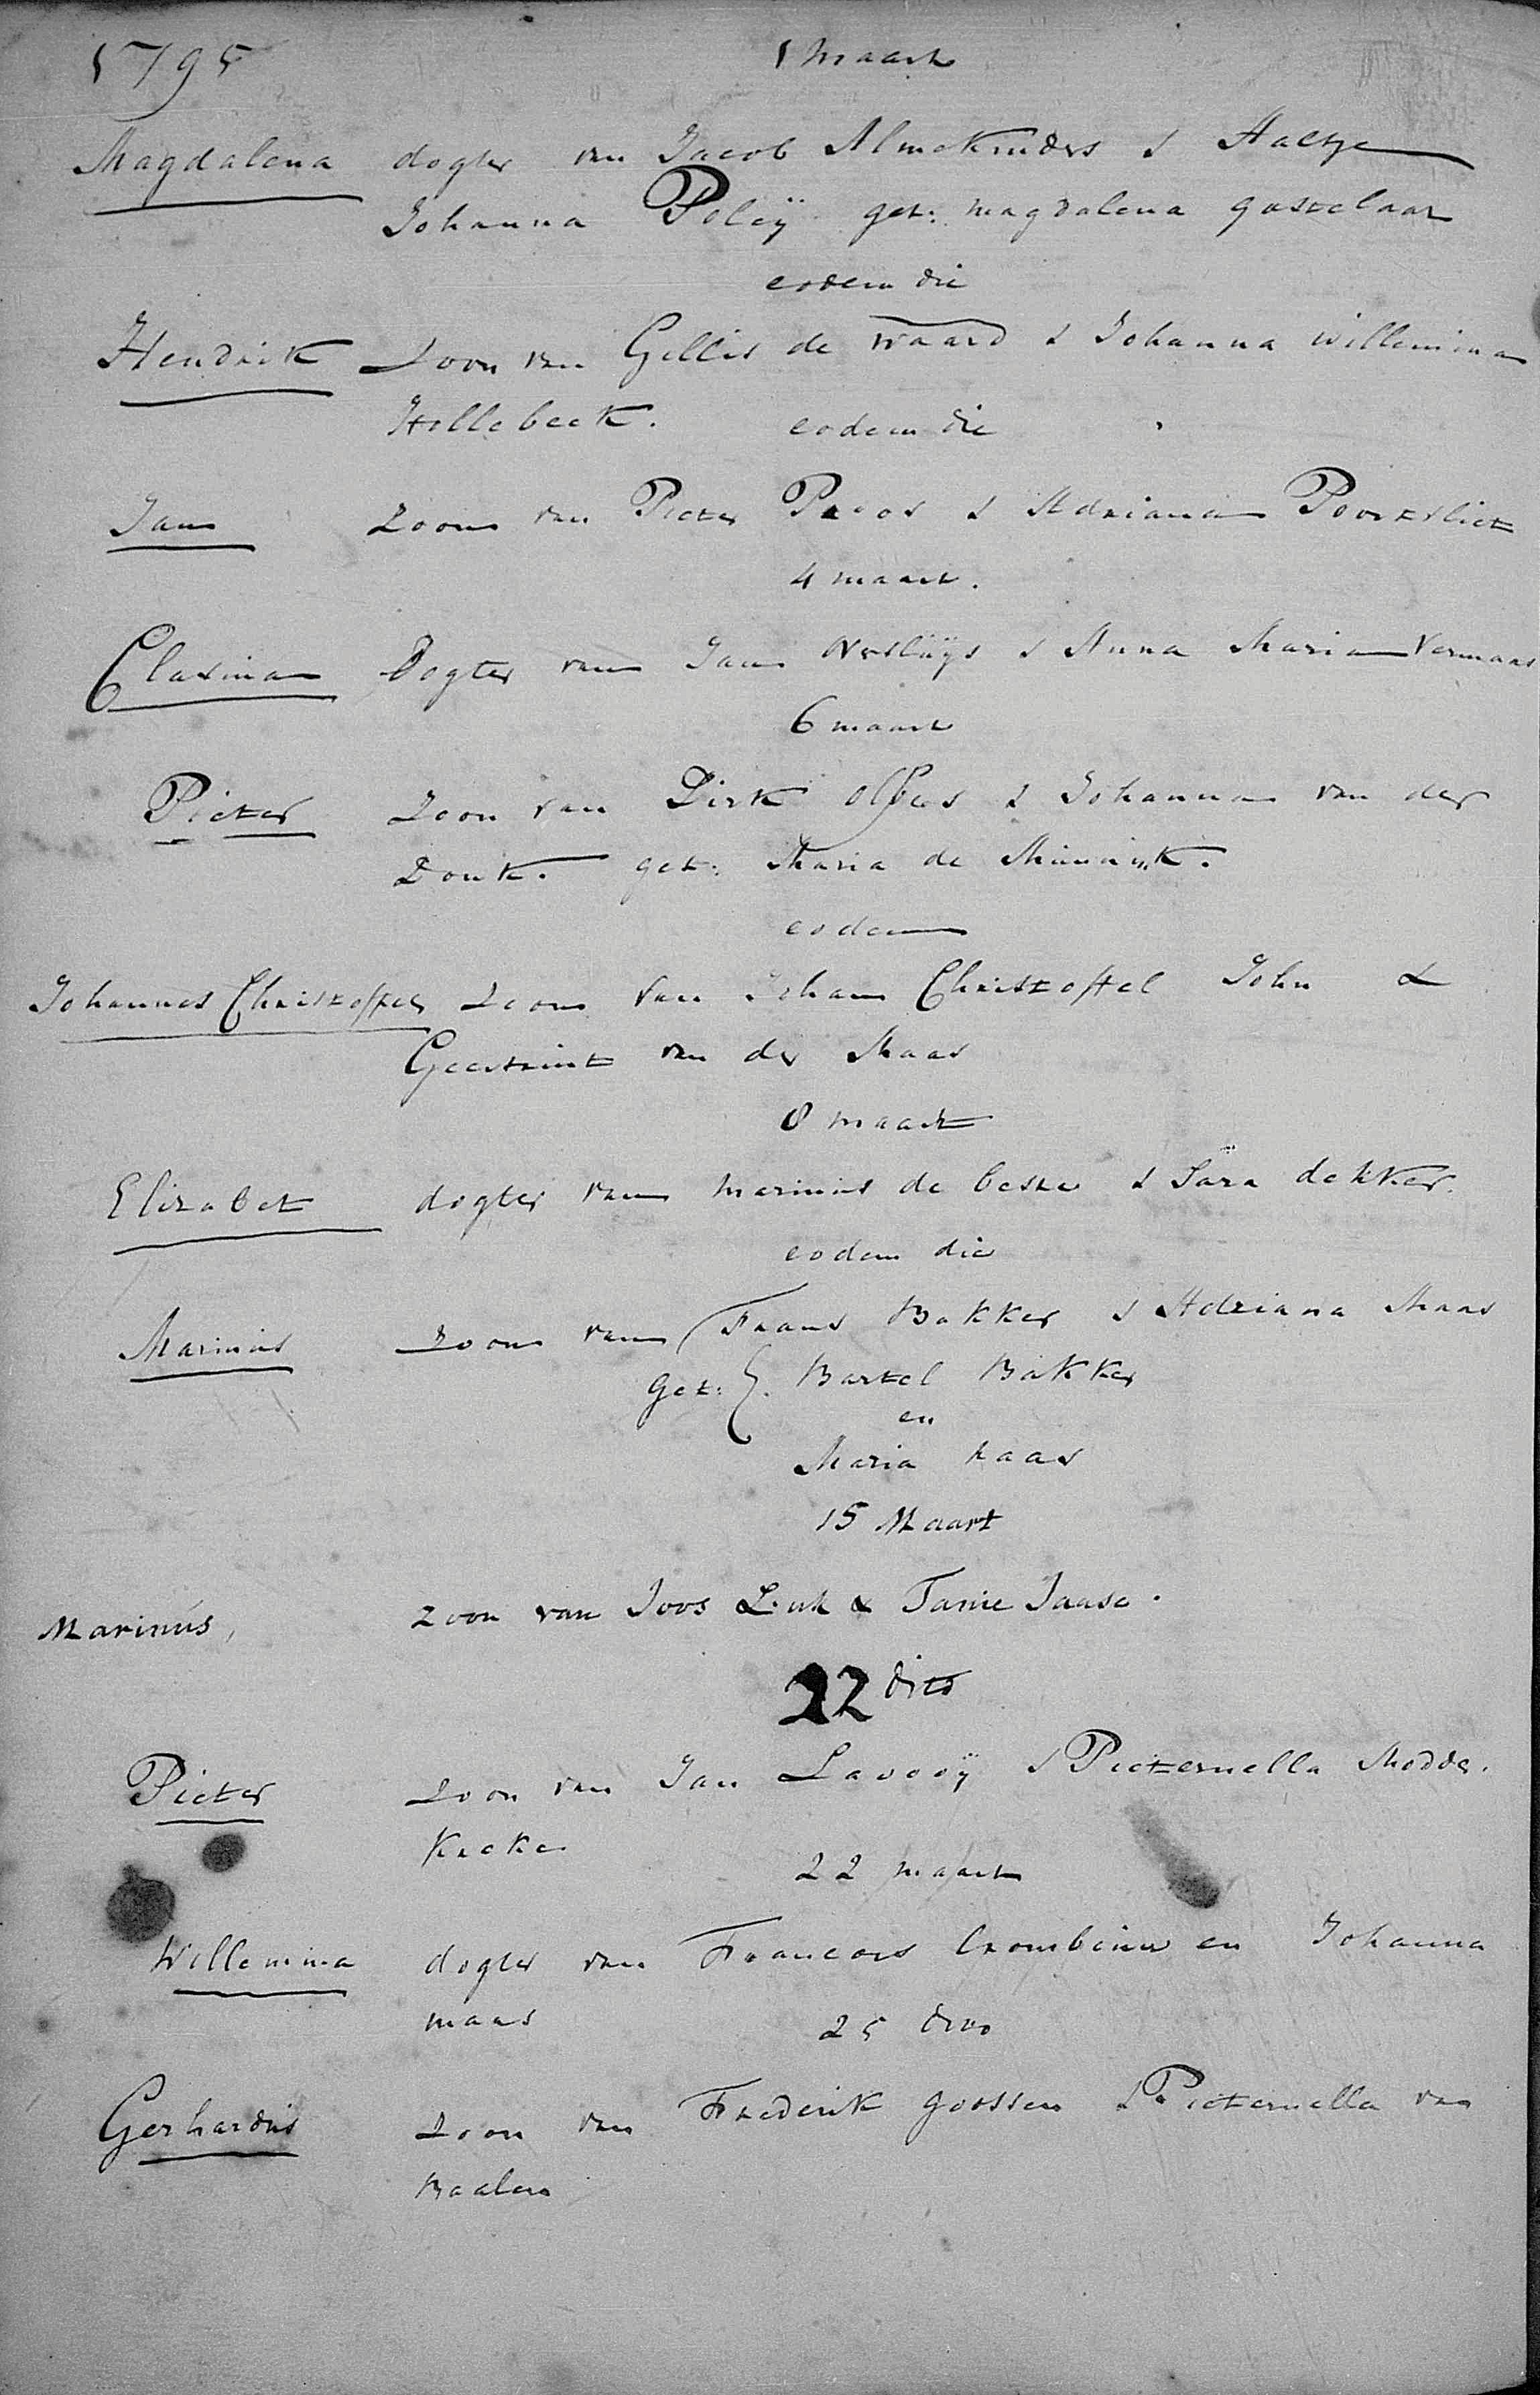 1795 1 maart
Magdalena dogter van Jacob Almekinders & Aaltje
Johanna Poleÿ get: magdalena gastelaar
eodem die
Hendrik Zoon van Gillis de Waard & Johanna willemina
Hollebeek. eodem die
Jan Zoon van Pieter Proos & Adriana Poortvliet
4 maart.
Clasina Dogter van Jan Versluÿs & Anna Maria Vermaas
6 maart
Pieter Zoon van Dirk & Johanna van der
Donk. get: Maria de Munnik.
eodem
Johannes Christoffel Zoon van Johan Christoffel John &
Geertruit van der Maas
8 maart
Elizabet dogter van marinus de beste & Sara dekker.
eodem die
Marinus Zoon van Frans Bakker & Adriana Maas
Get: Bartel Bakker
en
Maria haas
15 Maart
Marinus, zoon van Joos & Janse.
22 dito
Pieter Zoon van Jan Lavooÿ & Pieternella Modde.
Kreke
22 maart
Willemina dogter van Francois Crombeen en Johanna
maas 25 dito
Gerhardus Zoon van Frederik goossen & Pieternella van
Baalen